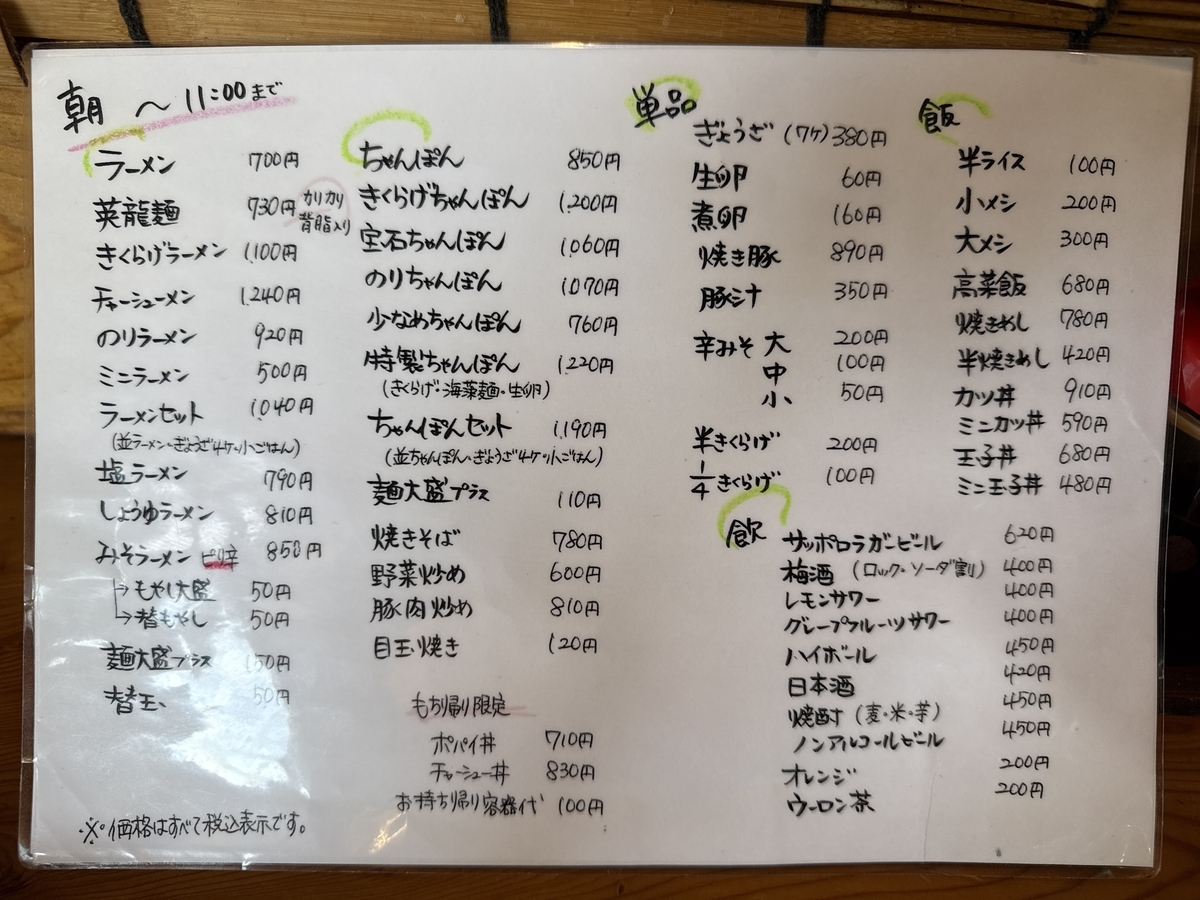 朝 ~11:00まで
ラーメン 700円
菜龍麺 730円 カリカリ背脂入り
きくらげラーメン 1,100円
チャーシューメン 1,240円
のりラーメン 920円
ミニラーメン 500円
ラーメンセット 1,040円
(並ラーメン・ぎょうざ4ケ・小ごはん)
塩ラーメン 790円
しょうゆラーメン 810円
みそラーメン ピリ辛 850円
→もやし大盛 50円
→替もやし 50円
麺大盛プラス 150円
替玉 50円
※価格はすべて税込表示です。
ちゃんぽん 850円
きくらげちゃんぽん 1,200円
宝石ちゃんぽん 1,060円
のりちゃんぽん 1,070円
少なめちゃんぽん 760円
特製ちゃんぽん 1,220円
(きくらげ・海藻麺・生卵)
ちゃんぽんセット 1,190円
(並ちゃんぽん・ぎょうざ4ケ・小ごはん)
麺大盛プラス 110円
焼きそば 780円
野菜炒め 600円
豚肉炒め 810円
目玉焼き 120円
もち帰り限定
ポパイ丼 710円
チャーシュー丼 830円
お持ち帰り容器代 100円
単品
ぎょうざ (7ケ) 380円
生卵 60円
煮卵 160円
焼き豚 890円
豚汁 350円
辛みそ 大 200円
中 100円
小 50円
半きくらげ 200円
1/4きくらげ 100円
飯
半ライス 100円
小メシ 200円
大メシ 300円
高菜飯 680円
焼きめし 780円
半焼きめし 420円
カツ丼 910円
ミニカツ丼 590円
玉子丼 680円
ミニ玉子丼 480円
飲
サッポロラガービール 620円
梅酒 (ロック・ソーダ割) 400円
レモンサワー 400円
グレープフルーツサワー 400円
ハイボール 450円
日本酒 420円
焼酎 (麦・米・芋) 450円
ノンアルコールビール 450円
オレンジ 200円
ウーロン茶 200円